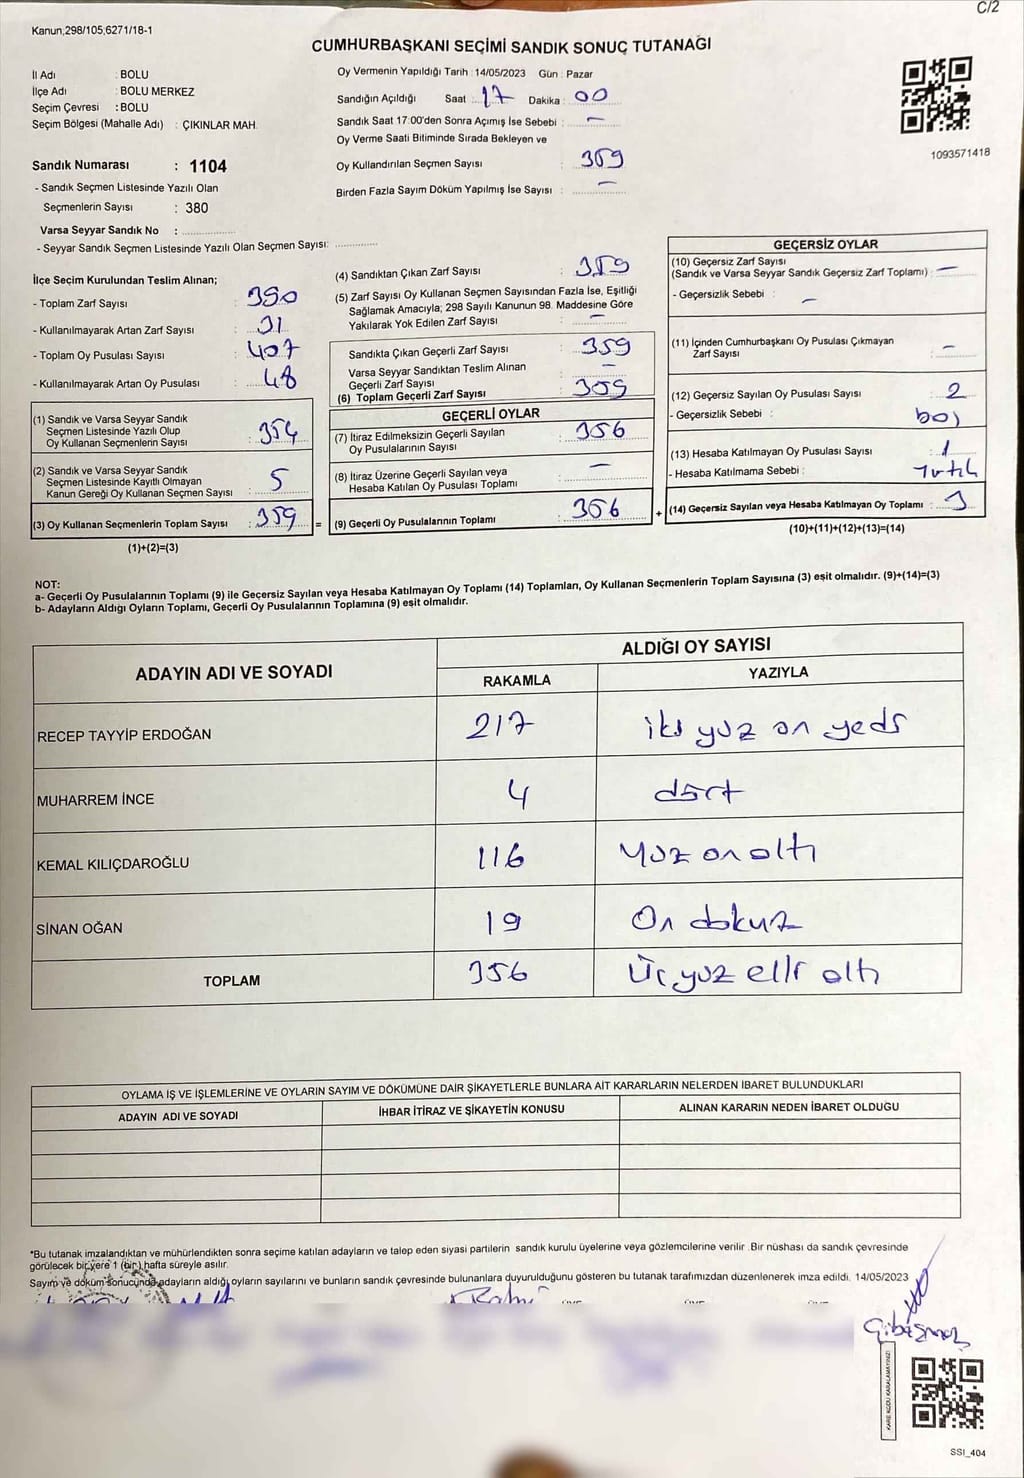 C/2
Kanun;298/105;6271/18-1
CUMHURBAŞKANI SEÇİMİ SANDIK SONUÇ TUTANAĞI
İl Adı : BOLU
İlçe Adı : BOLU MERKEZ
Seçim Çevresi : BOLU
Seçim Bölgesi (Mahalle Adı) : ÇIKINLAR MAH.
Sandık Numarası : 1104
- Sandık Seçmen Listesinde Yazılı Olan
Seçmenlerin Sayısı : 380
Varsa Seyyar Sandık No :
- Seyyar Sandık Seçmen Listesinde Yazılı Olan Seçmen Sayısı:
Oy Vermenin Yapıldığı Tarih : 14/05/2023 Gün : Pazar
Sandığın Açıldığı Saat : 17 Dakika : 00
Sandık Saat 17:00'den Sonra Açımış İse Sebebi : -
Oy Verme Saati Bitiminde Sırada Bekleyen ve
Oy Kullandırılan Seçmen Sayısı : 359
Birden Fazla Sayım Döküm Yapılmış İse Sayısı : -
1093571418
İlçe Seçim Kurulundan Teslim Alınan;
- Toplam Zarf Sayısı : 390
- Kullanılmayarak Artan Zarf Sayısı : 31
- Toplam Oy Pusulası Sayısı : 407
- Kullanılmayarak Artan Oy Pusulası : 48
(1) Sandık ve Varsa Seyyar Sandık
Seçmen Listesinde Yazılı Olup
Oy Kullanan Seçmenlerin Sayısı : 354
(2) Sandık ve Varsa Seyyar Sandık
Seçmen Listesinde Kayıtlı Olmayan
Kanun Gereği Oy Kullanan Seçmen Sayısı : 5
(3) Oy Kullanan Seçmenlerin Toplam Sayısı : 359 =
(1)+(2)=(3)
(4) Sandıktan Çıkan Zarf Sayısı : 359
(5) Zarf Sayısı Oy Kullanan Seçmen Sayısından Fazla İse, Eşitliği
Sağlamak Amacıyla; 298 Sayılı Kanunun 98. Maddesine Göre
Yakılarak Yok Edilen Zarf Sayısı : -
Sandıkta Çıkan Geçerli Zarf Sayısı : 359
Varsa Seyyar Sandıktan Teslim Alınan
Geçerli Zarf Sayısı : -
(6) Toplam Geçerli Zarf Sayısı : 359
GEÇERLİ OYLAR
(7) İtiraz Edilmeksizin Geçerli Sayılan
Oy Pusulalarının Sayısı : 356
(8) İtiraz Üzerine Geçerli Sayılan veya
Hesaba Katılan Oy Pusulası Toplamı : -
(9) Geçerli Oy Pusulalarının Toplamı : 356 +
GEÇERSİZ OYLAR
(10) Geçersiz Zarf Sayısı
(Sandık ve Varsa Seyyar Sandık Geçersiz Zarf Toplamı) : -
- Geçersizlik Sebebi : -
(11) İçinden Cumhurbaşkanı Oy Pusulası Çıkmayan
Zarf Sayısı : -
(12) Geçersiz Sayılan Oy Pusulası Sayısı : 2
- Geçersizlik Sebebi : boş
(13) Hesaba Katılmayan Oy Pusulası Sayısı : 1
- Hesaba Katılmama Sebebi : Yırtık
(14) Geçersiz Sayılan veya Hesaba Katılmayan Oy Toplamı : 3
(10)+(11)+(12)+(13)=(14)
NOT:
a- Geçerli Oy Pusulalarının Toplamı (9) ile Geçersiz Sayılan veya Hesaba Katılmayan Oy Toplamı (14) Toplamları, Oy Kullanan Seçmenlerin Toplam Sayısına (3) eşit olmalıdır. (9)+(14)=(3)
b- Adayların Aldığı Oyların Toplamı, Geçerli Oy Pusulalarının Toplamına (9) eşit olmalıdır.
ADAYIN ADI VE SOYADI ALDIĞI OY SAYISI
RAKAMLA YAZIYLA
RECEP TAYYİP ERDOĞAN 217 iki yuz on yedi
MUHARREM İNCE 4 dört
KEMAL KILIÇDAROĞLU 116 Yuz on altı
SİNAN OĞAN 19 On dokuz
TOPLAM 356 Üç yuz elli altı
OYLAMA İŞ VE İŞLEMLERİNE VE OYLARIN SAYIM VE DÖKÜMÜNE DAİR ŞİKAYETLERLE BUNLARA AİT KARARLARIN NELERDEN İBARET BULUNDUKLARI
ADAYIN ADI VE SOYADI İHBAR İTİRAZ VE ŞİKAYETİN KONUSU ALINAN KARARIN NEDEN İBARET OLDUĞU
*Bu tutanak imzalandıktan ve mühürlendikten sonra seçime katılan adayların ve talep eden siyasi partilerin sandık kurulu üyelerine veya gözlemcilerine verilir .Bir nüshası da sandık çevresinde
görülecek bir yere 1 (bir) hafta süreyle asılır.
Sayım ve döküm sonucunda adayların aldığı oyların sayılarını ve bunların sandık çevresinde bulunanlara duyurulduğunu gösteren bu tutanak tarafımızdan düzenlenerek imza edildi. 14/05/2023
KARE KODU KARALAMAYINIZ!
SSI_404